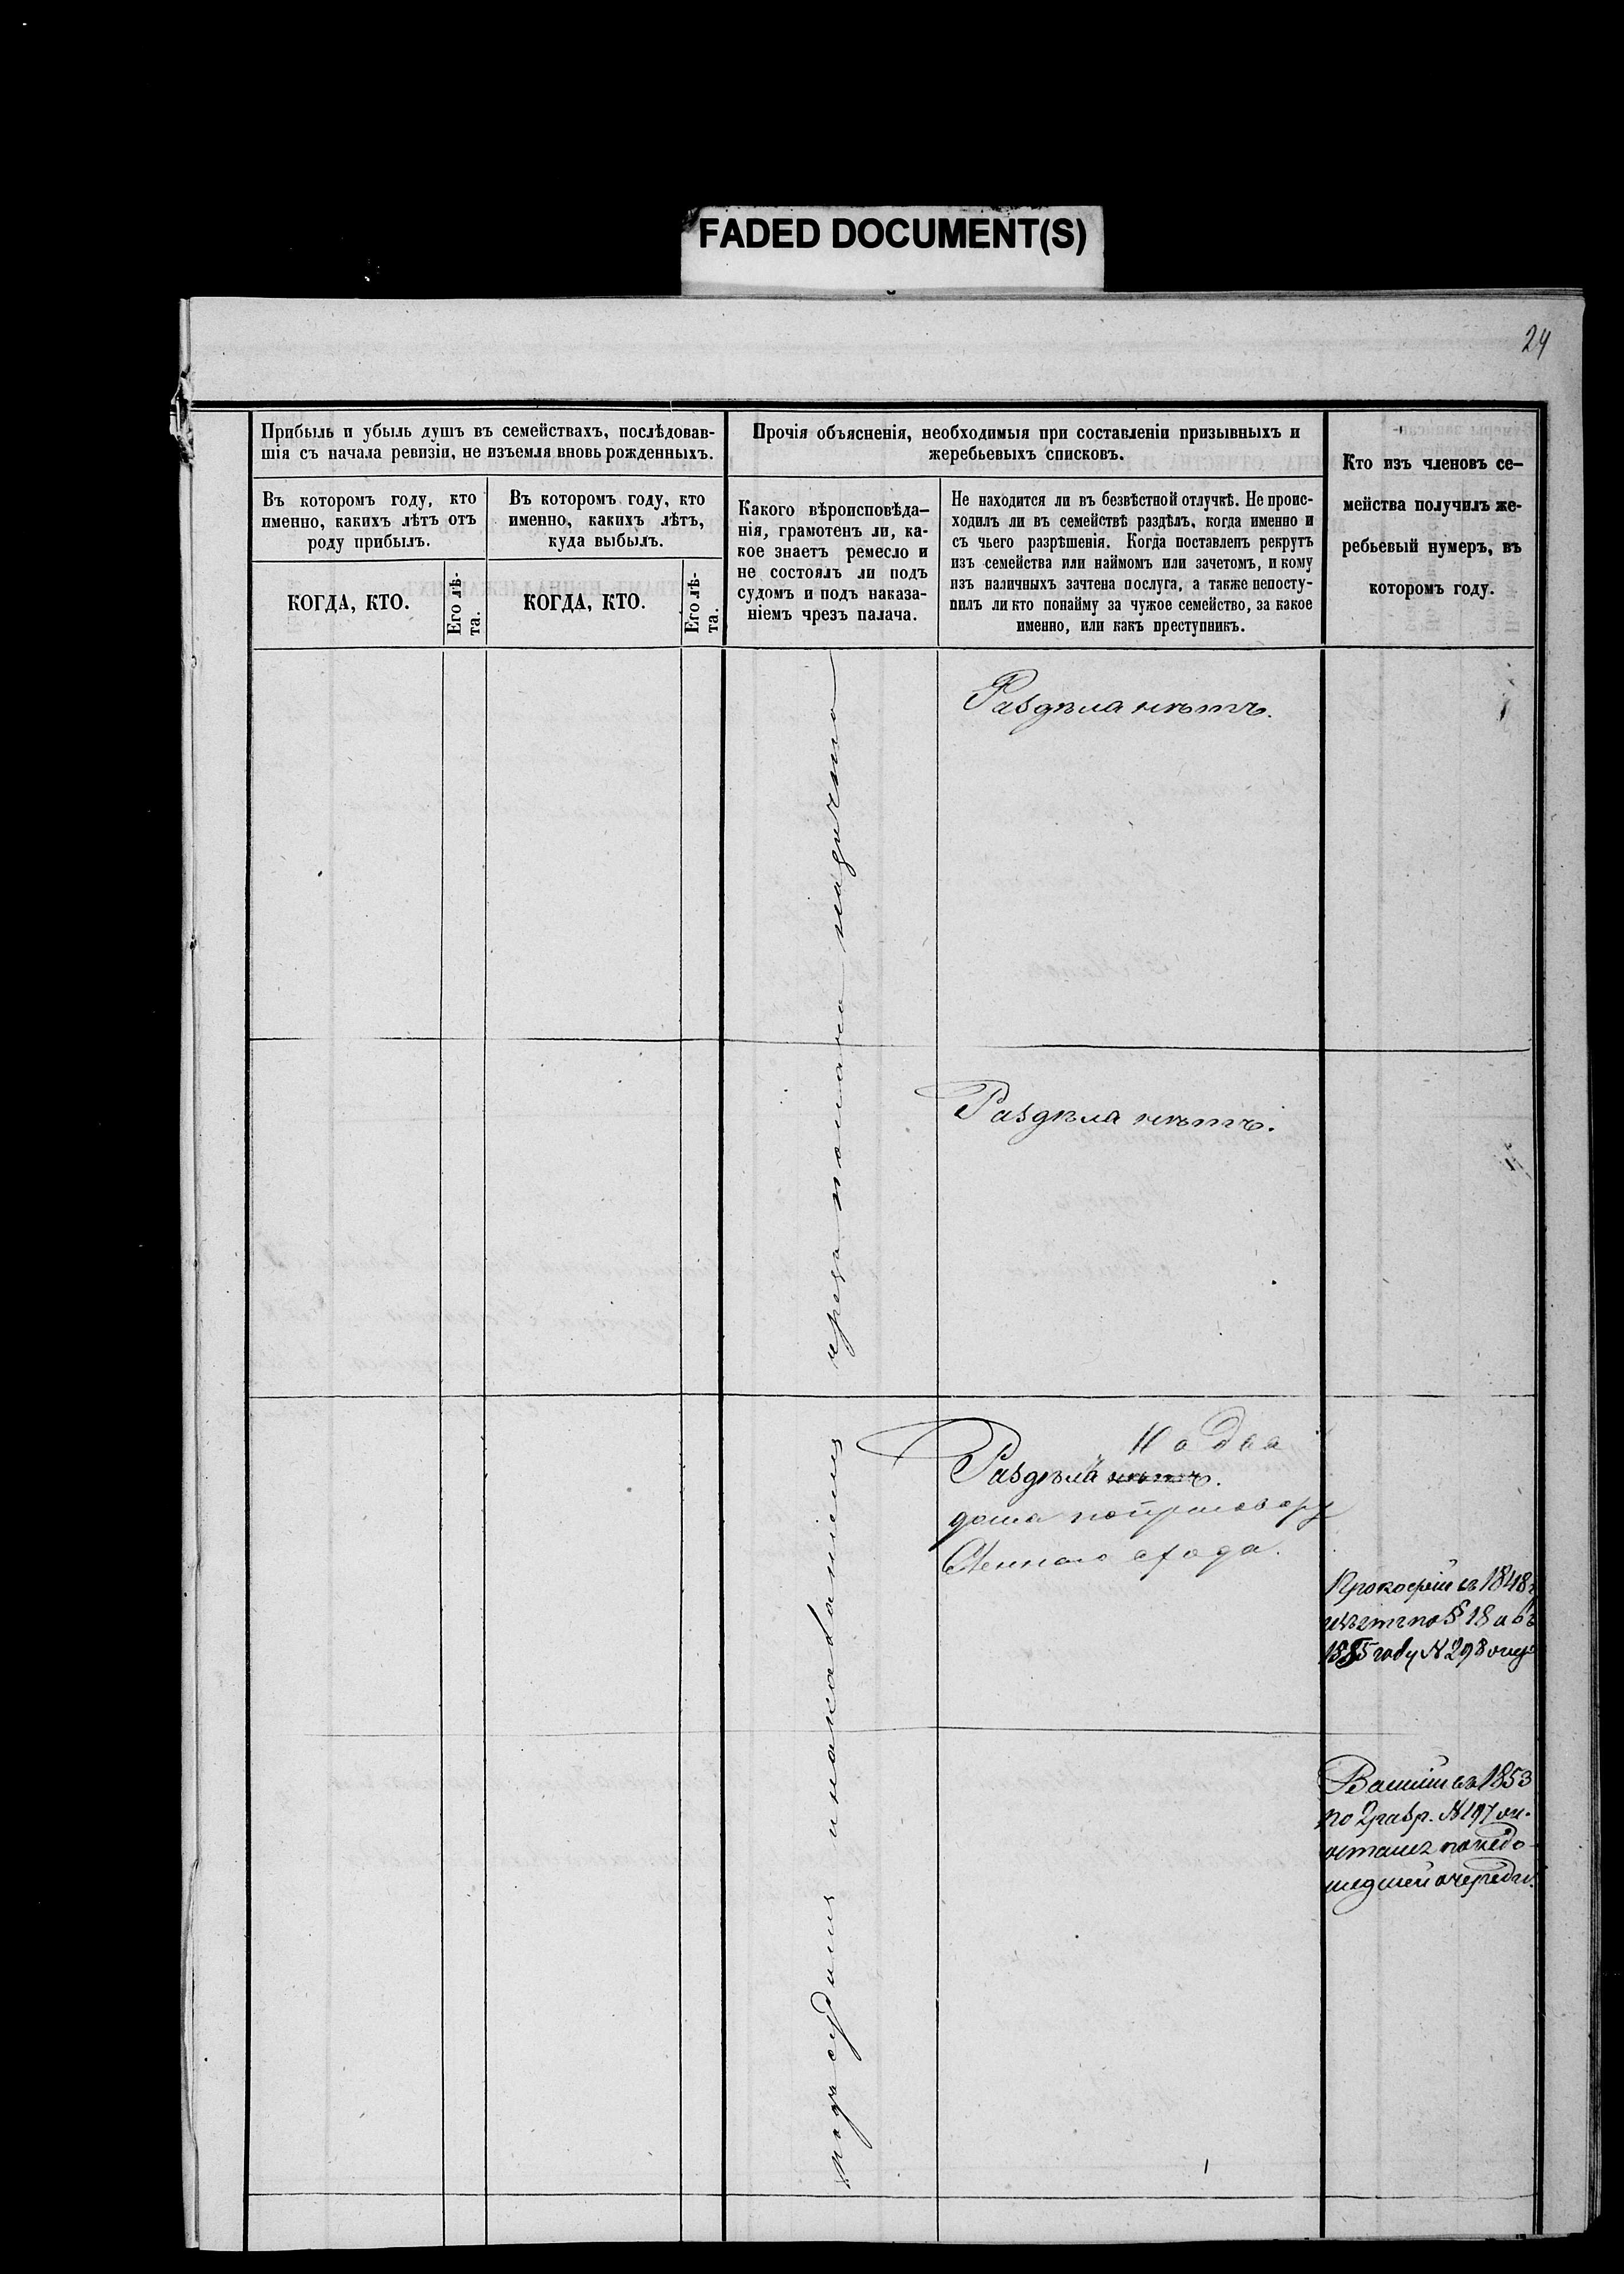 FADED DOCUMENT(S)
24
Прибыль и убыль душъ въ семействахъ, послѣдовав-
шія съ начала ревизіи, не изъемля вновь рожденныхъ.
Въ которомъ году, кто
именно, какихъ лѣтъ отъ
роду прибылъ.
КОГДА, КТО.
Его лѣ-
та.
Въ которомъ году, кто
именно, какихъ лѣтъ,
куда выбылъ.
КОГДА, КТО.
Его лѣ-
та.
Прочія объясненія, необходимыя при составленіи призывныхъ и
жеребьевыхъ списковъ.
Какого вѣроисповѣда-
нія, грамотенъ ли, ка-
кое знаетъ ремесло и
не состоялъ ли подъ
судомъ и подъ наказа-
ніемъ чрезъ палача.
Не находится ли въ безвѣстной отлучкѣ. Не проис-
ходилъ ли въ семействѣ раздѣлъ, когда именно и
съ чьего разрѣшенія. Когда поставленъ рекрутъ
изъ семейства или наймомъ или зачетомъ, и кому
изъ наличныхъ зачтена послуга, а также непосту-
пилъ ли кто понайму за чужое семейство, за какое
именно, или какъ преступникъ.
Кто изъ членовъ се-
мейства получилъ же-
ребьевый нумеръ, въ
которомъ году.
подъ судимъ инаказаніемъ чрезъ палача
Раздѣла нѣтъ.
Раздѣла нѣтъ.
На два
Раздѣлъ нѣтъ.
дома поприговору
схода.
Прокофій въ 1848
по § 18 а въ
1855 году N 298
въ 1853
по 2 разр. N 197